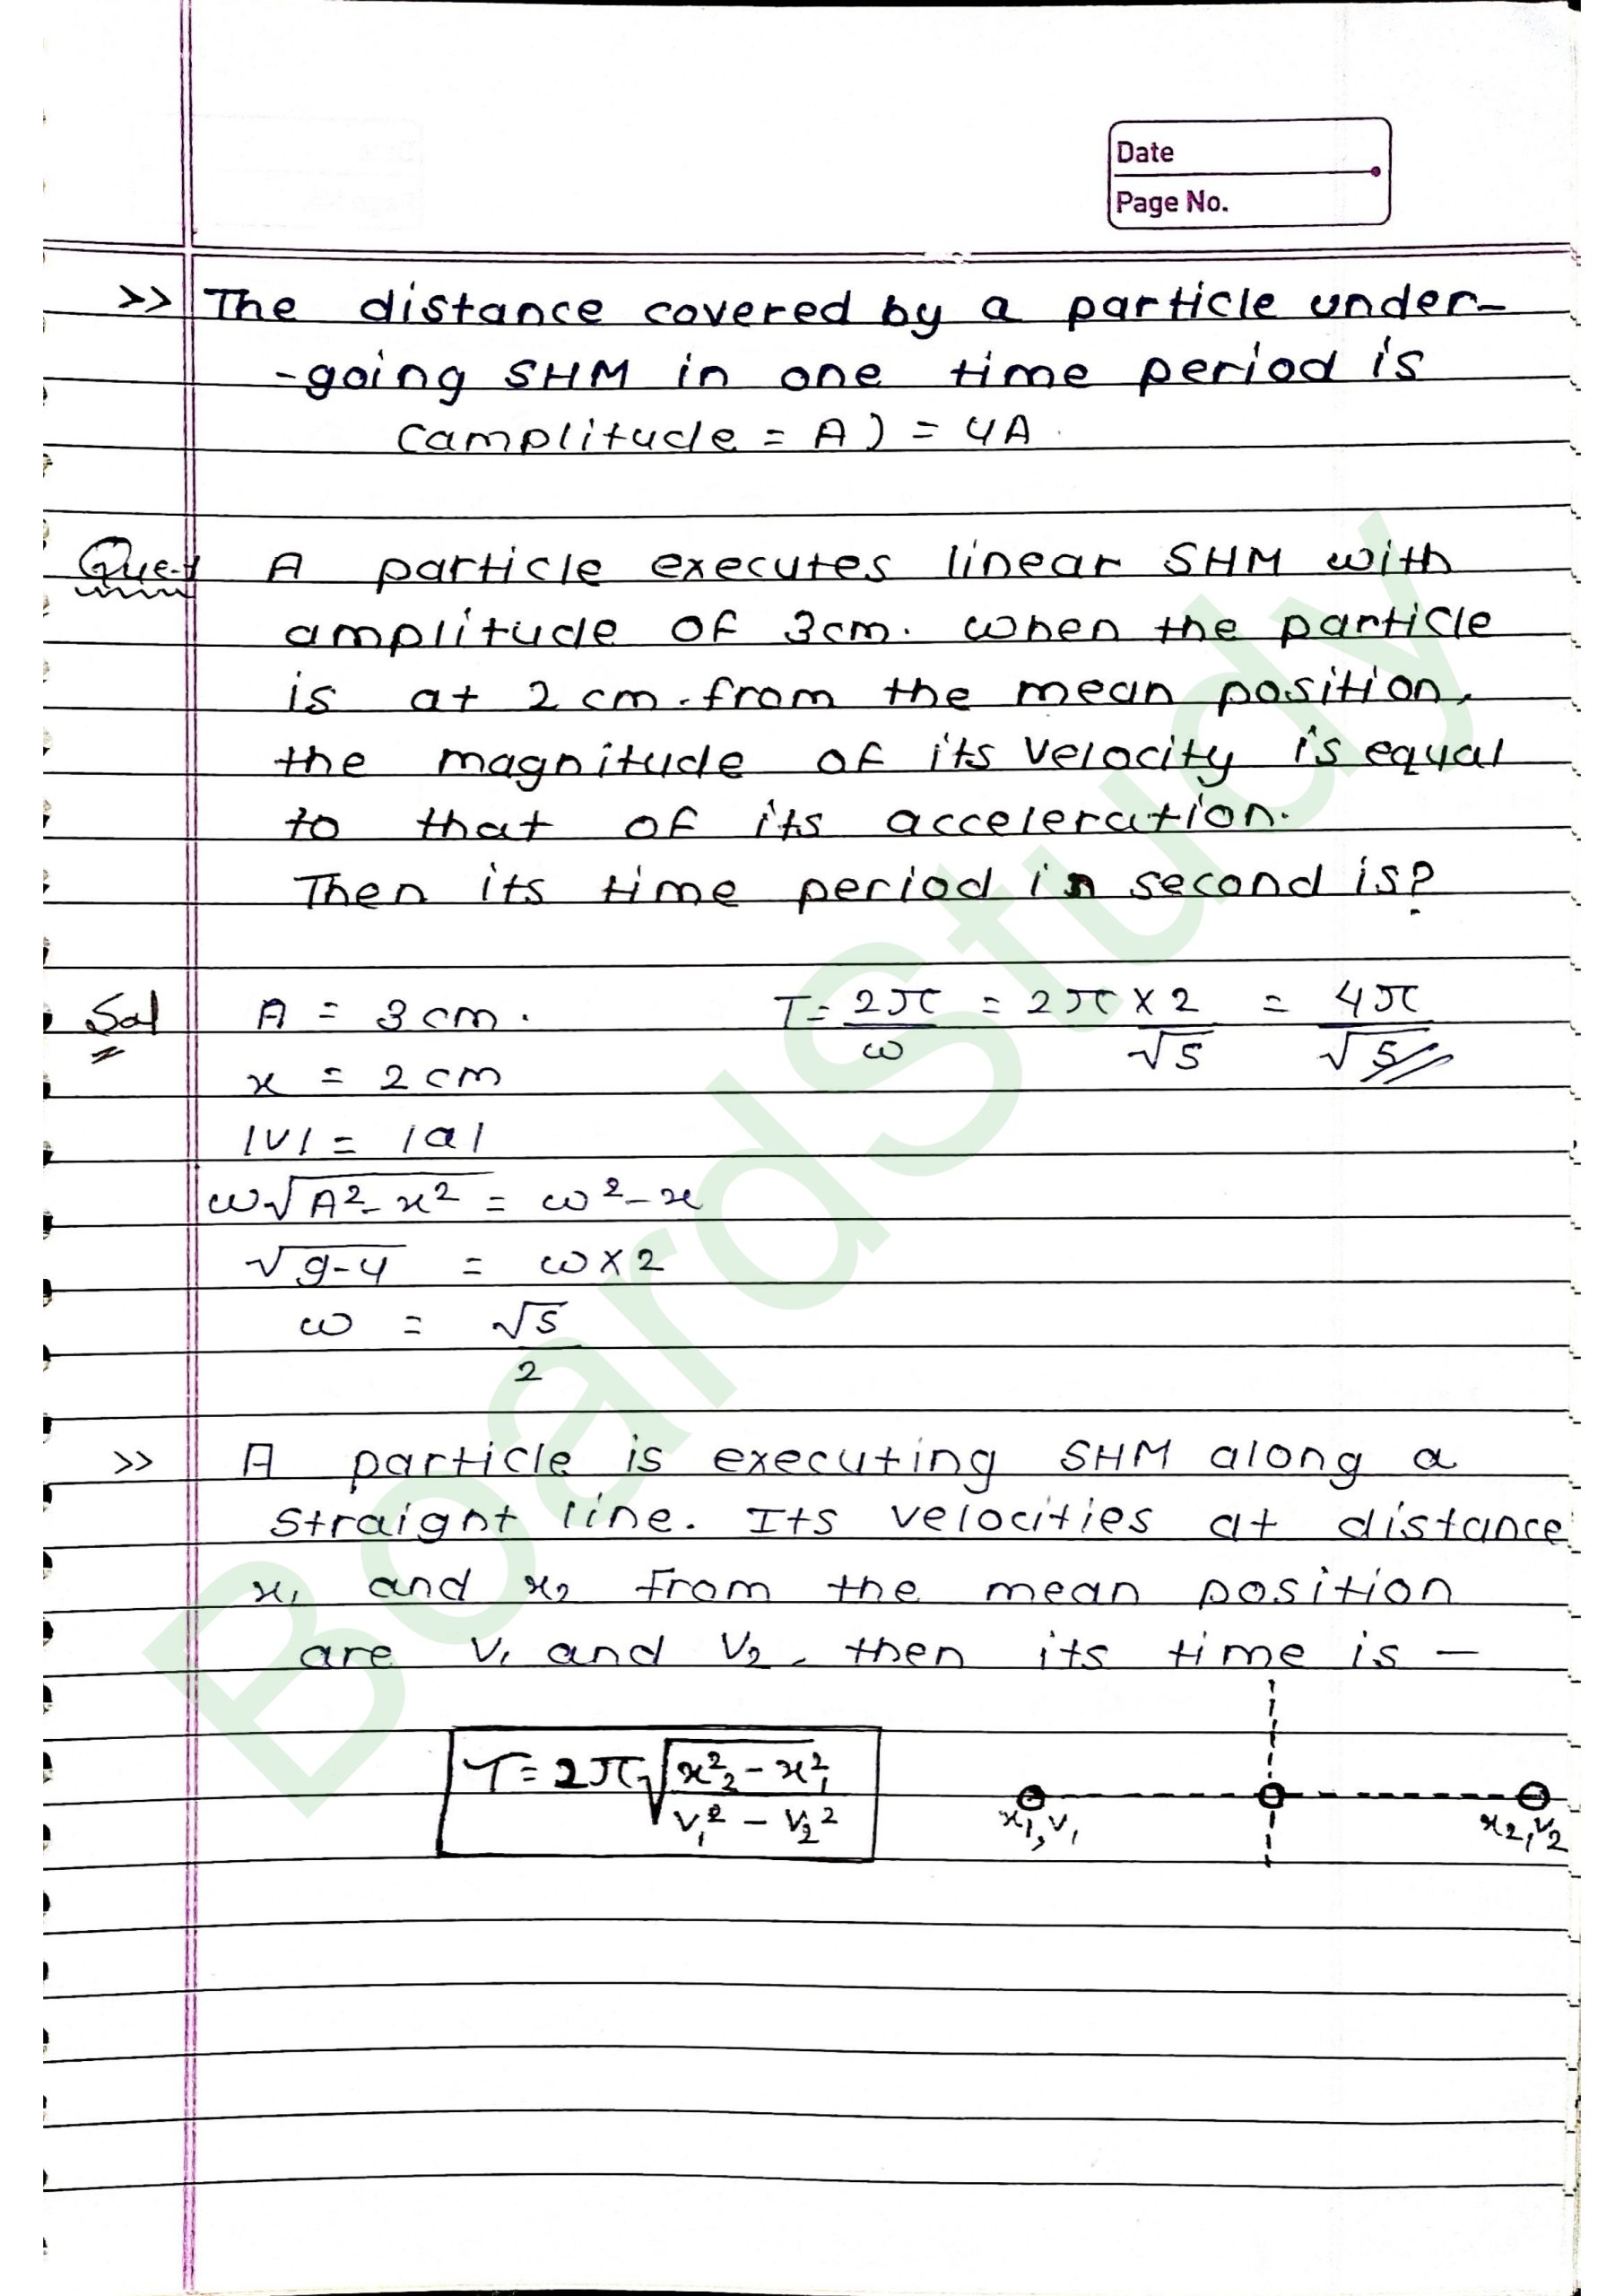 Date
Page No.
>> The distance covered by a particle under-
-going SHM in one time period is
(amplitude = A) = 4A
Que-1 A particle executes linear SHM with
amplitude of 3cm. When the particle
is at 2 cm. from the mean position,
the magnitude of its velocity is equal
to that of its acceleration.
Then its time period in second is?
Sol A = 3 cm.
x = 2 cm
|v| = |a|
ω√A²-x² = ω²-x
√9-4 = ω×2
ω = √5/2
T = 2π/ω = 2π×2/√5 = 4π/√5
>> A particle is executing SHM along a
straight line. Its velocities at distance
x₁ and x₂ from the mean position
are V₁ and V₂, then its time is —
T = 2π√x₂²-x₁²/V₁²-V₂²
x₁,v₁
x₂,v₂
BoardStudy